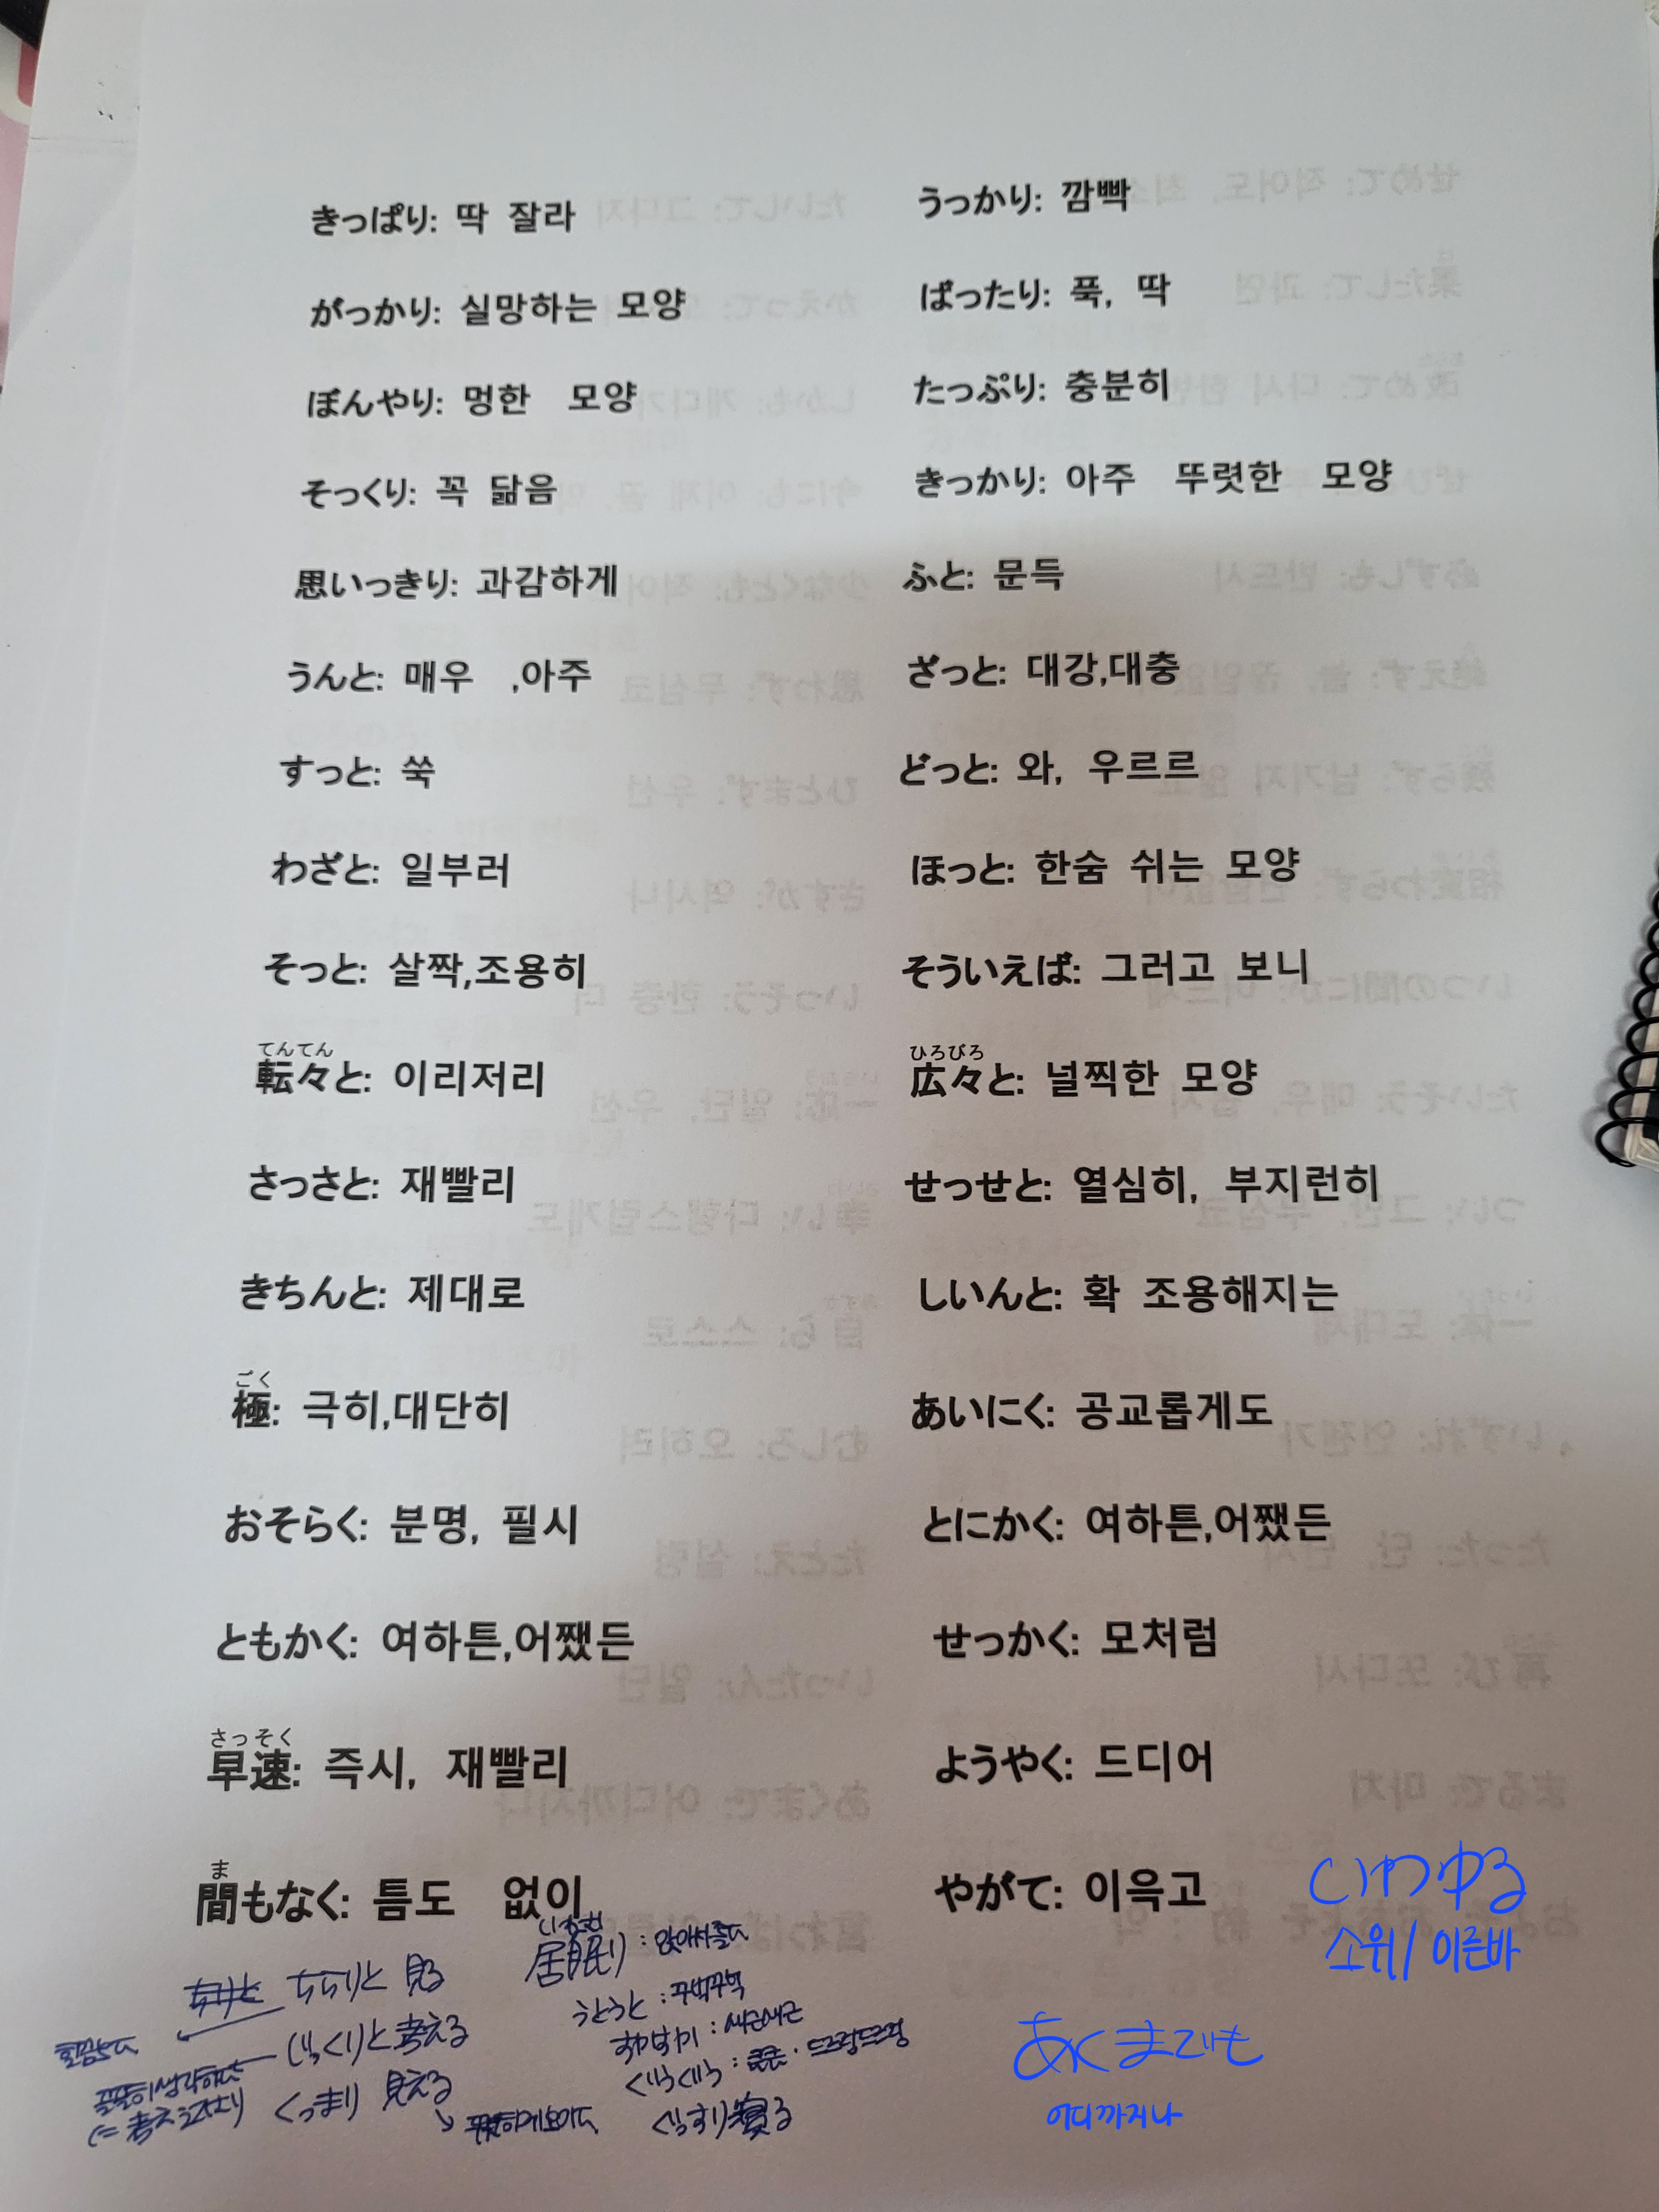 きっぱり: 딱 잘라
がっかり: 실망하는 모양
ぼんやり: 멍한 모양
そっくり: 꼭 닮음
思いっきり: 과감하게
うんと: 매우 ,아주
すっと: 쑥
わざと: 일부러
そっと: 살짝,조용히
てんてん
転々と: 이리저리
さっさと: 재빨리
きちんと: 제대로
ごく
極: 극히,대단히
おそらく: 분명, 필시
ともかく: 여하튼,어쨌든
さっそく
早速: 즉시, 재빨리
ま
間もなく: 틈도 없이
うっかり: 깜빡
ばったり: 푹, 딱
たっぷり: 충분히
きっかり: 아주 뚜렷한 모양
ふと: 문득
ざっと: 대강,대충
どっと: 와, 우르르
ほっと: 한숨 쉬는 모양
そういえば: 그러고 보니
ひろびろ
広々と: 널찍한 모양
せっせと: 열심히, 부지런히
しいんと: 확 조용해지는
あいにく: 공교롭게도
とにかく: 여하튼,어쨌든
せっかく: 모처럼
ようやく: 드디어
やがて: 이윽고
いわゆる
소위/이른바
あくまでも
어디까지나
ちらりと 見る
じっくりと考える
곰곰이생각하다
見える
居眠り: 앉아서졸다
うとうと: 꾸벅꾸벅
すやすや: 새근새근
ぐうぐう: 쿨쿨·드르렁드르렁
ぐっすり寝る